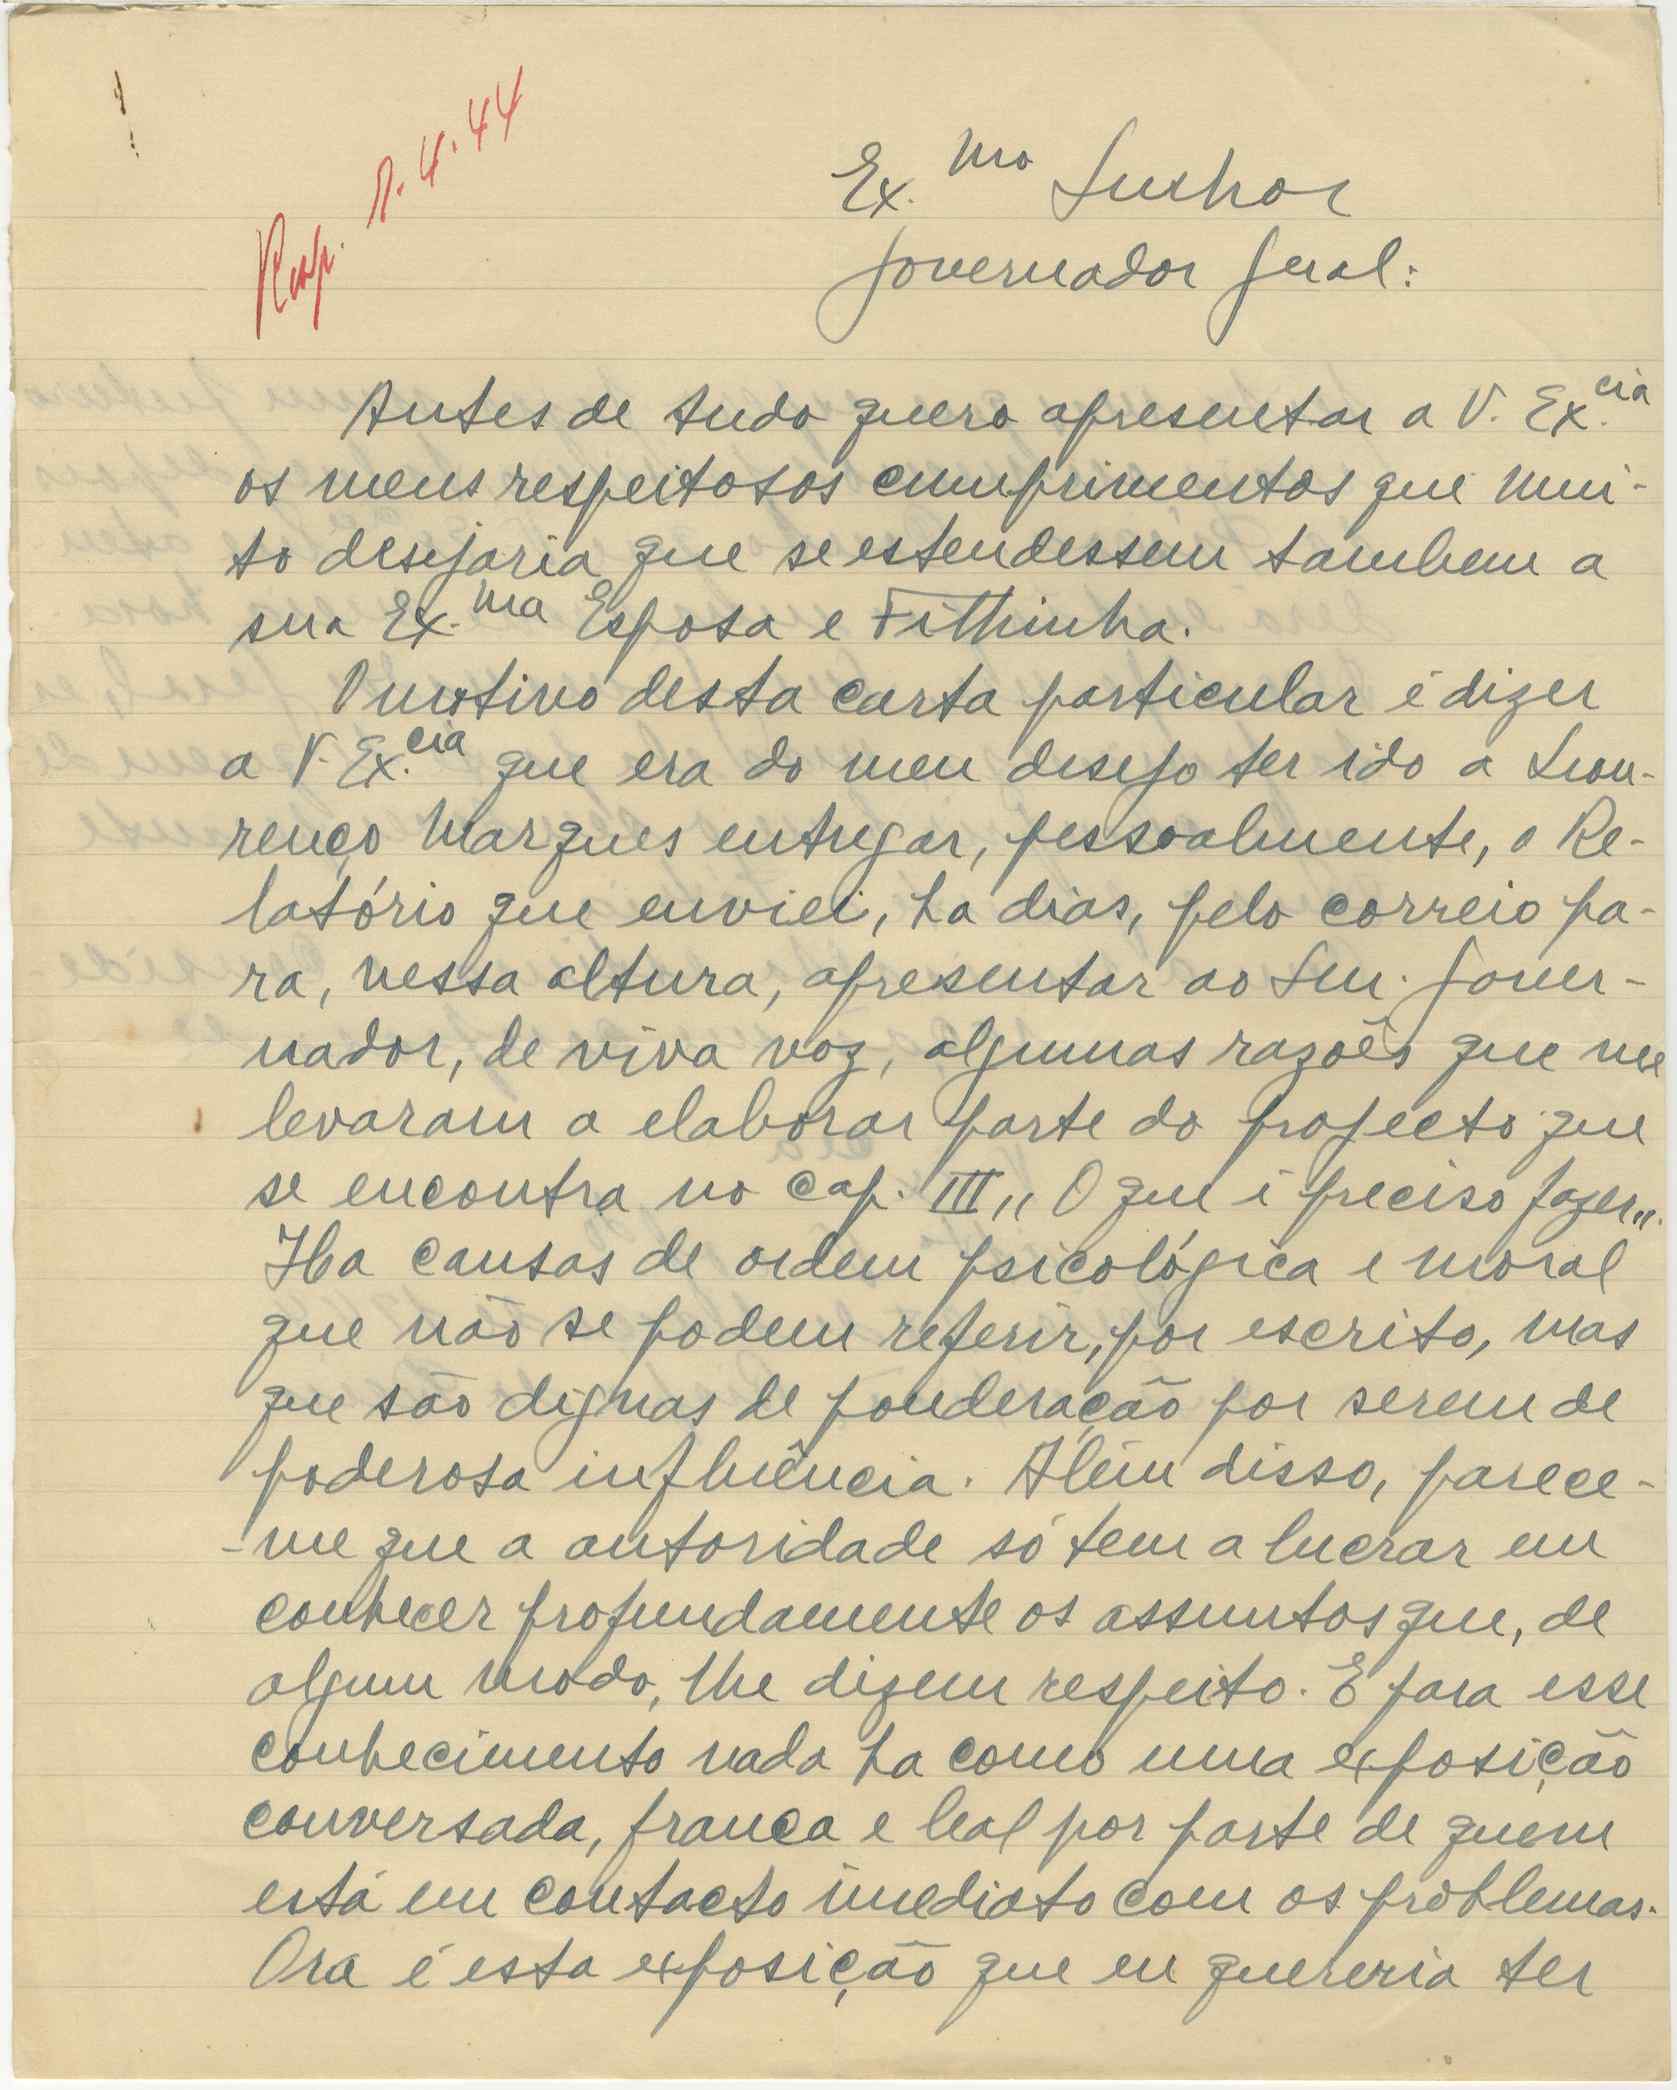 Resp. 17.4.44
Ex.mo Senhor
Governador Geral:
Antes de tudo quero apresentar a V. Ex.cia
os meus respeitosos cumprimentos que mui-
to desejaria que se estendessem tambem a
sua Ex.ma Esposa e Filhinha.
O motivo desta carta particular é dizer
a V. Ex.cia que era do meu desejo ter ido a Lou-
renço Marques entregar, pessoalmente, o Re-
latório que enviei, ha dias, pelo correio pa-
ra, nessa altura, apresentar ao Sen. Gover-
nador, de viva voz, algumas razões que me
levaram a elaborar parte do projecto que
se encontra no cap. III „ O que é preciso fazer„.
Ha causas de ordem psicológica e moral
que não se podem referir, por escrito, mas
que são dignas de ponderação por serem de
poderosa influência. Além disso, parece-
-me que a autoridade só tem a lucrar em
conhecer profundamente os assuntos que, de
algum modo, lhe dizem respeito. E para esse
conhecimento nada ha como uma exposição
conversada, franca e leal por parte de quem
está em contacto imediato com os problemas.
Ora é esta exposição que eu quereria ter